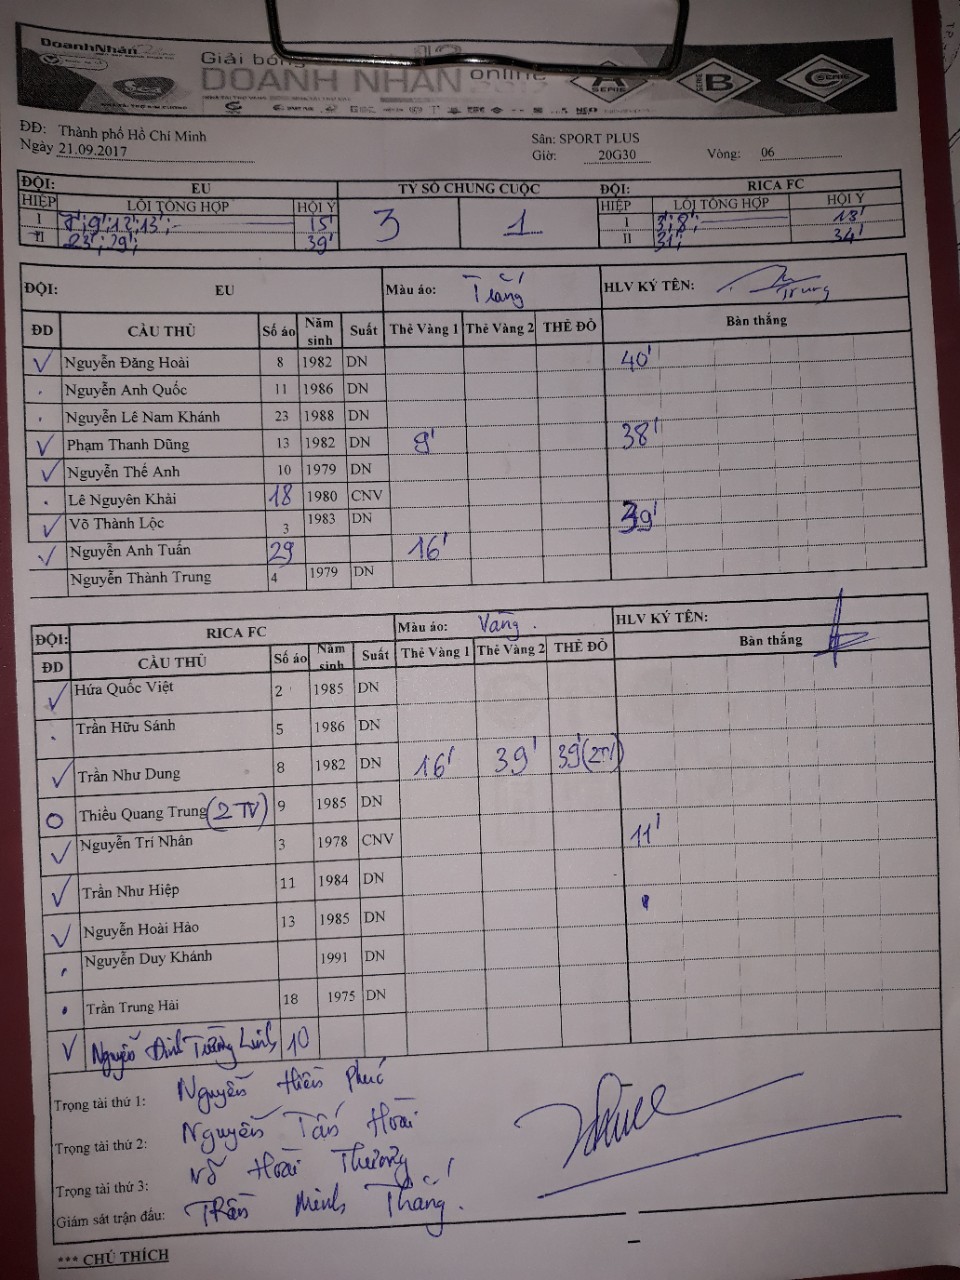 DoanhNhân
Giải bóng
DOANH NHÂN online
2017
A SERIE B SERIE C SERIE
ĐĐ: Thành phố Hồ Chí Minh Sân: SPORT PLUS
Ngày 21.09.2017 Giờ: 20G30 Vòng: 06
ĐỘI: EU TỶ SỐ CHUNG CUỘC ĐỘI: RICA FC
HIỆP LỖI TỔNG HỢP HỘI Ý 3 1 HIỆP LỖI TỔNG HỢP HỘI Ý
I 9' 12' 13' 15' I 3' 8' 18'
II 23' 29' 39' II 31' 34'
ĐỘI: EU Màu áo: Trắng HLV KÝ TÊN: Trung
ĐD CẦU THỦ Số áo Năm sinh Suất Thẻ Vàng 1 Thẻ Vàng 2 THẺ ĐỎ Bàn thắng
Nguyễn Đăng Hoài 8 1982 DN 40'
Nguyễn Anh Quốc 11 1986 DN
Nguyễn Lê Nam Khánh 23 1988 DN
Phạm Thanh Dũng 13 1982 DN 9' 38'
Nguyễn Thế Anh 10 1979 DN
Lê Nguyên Khải 18 1980 CNV
Võ Thành Lộc 3 1983 DN 39'
Nguyễn Anh Tuấn 29 16'
Nguyễn Thành Trung 4 1979 DN
ĐỘI: RICA FC Màu áo: Vàng. HLV KÝ TÊN:
ĐD CẦU THỦ Số áo Năm sinh Suất Thẻ Vàng 1 Thẻ Vàng 2 THẺ ĐỎ Bàn thắng
Hứa Quốc Việt 2 1985 DN
Trần Hữu Sánh 5 1986 DN
Trần Như Dung 8 1982 DN 16' 39' 39' (2TV)
Thiều Quang Trung (2 TV) 9 1985 DN
Nguyễn Trí Nhân 3 1978 CNV 11'
Trần Như Hiệp 11 1984 DN
Nguyễn Hoài Hào 13 1985 DN
Nguyễn Duy Khánh 1991 DN
Trần Trung Hải 18 1975 DN
Nguyễn Đình Tường Linh 10
Trọng tài thứ 1: Nguyễn Hiền Phúc
Trọng tài thứ 2: Nguyễn Tấn Hoài
Trọng tài thứ 3: Võ Hoài Thương
Giám sát trận đấu: Trần Minh Thắng.
*** CHÚ THÍCH